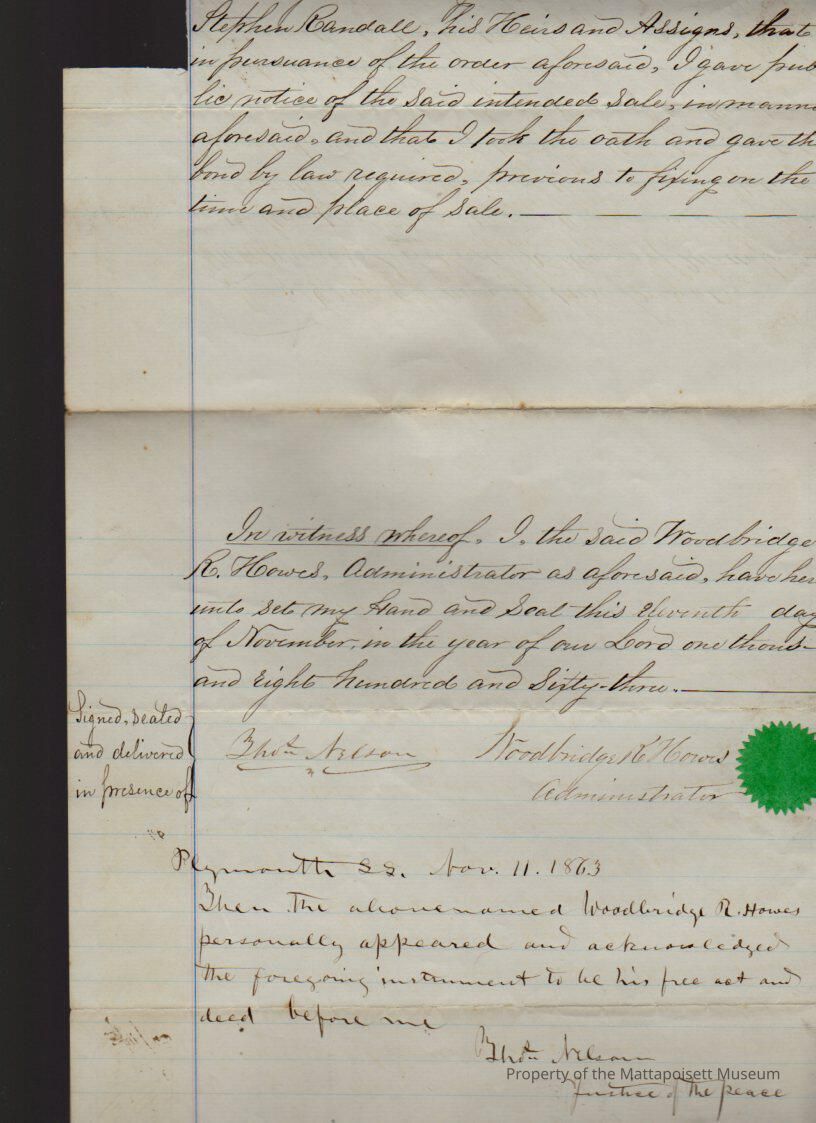 Stephen Randall, his Heirs and Assigns, that
in pursuance of the order aforesaid, I gave pub
lic notice of the said intended Sale, in manne
aforesaid, and that I took the oath and gave th
bond by law required, previous to fixing on the
time and place of Sale.
In witness whereof, I, the said Woodbridge
R. Howes, Administrator as aforesaid, have her
unto set my Hand and Seal this Eleventh day
of November, in the year of our Lord one thous-
and Eight hundred and Sixty-three.
Signed, sealed
and delivered
in presence of
Thos. Nelson
Woodbridge R Howes
Administrator
Plymouth SS. Nov. 11. 1863
Then the abovenamed Woodbridge R. Howes
personally appeared and acknowledged
the foregoing instrument to be his free act and
deed before me
Thos. Nelson
Property of the Mattapoisett Museum
Justice of the peace